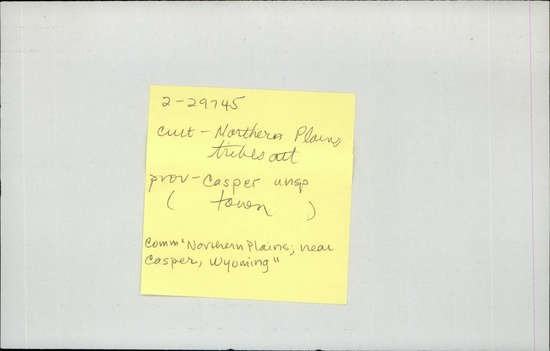 2-29745
cult - Northern Plains
tribes att
prov - Casper unsp
( town )
Comm "Northern Plains; near
Casper, Wyoming"